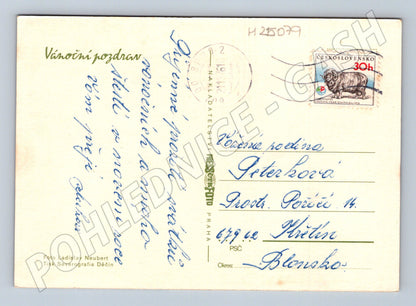 Vánoční pozdrav
Příjemné prožití svátků
vánočních a mnoho
štěstí v novém roce
Vám přejí
Foto Ladislav Neubert
Tisk Severografia Děčín
NAKLADATELSTVÍ
PRAHA
H25079
ČESKOSLOVENSKO
30h
Vážená rodina
Peterková
Prostř. Poříčí 14
679 62 Křetín
PSČ
Okres: Blansko
POHLEDNICE - GASH